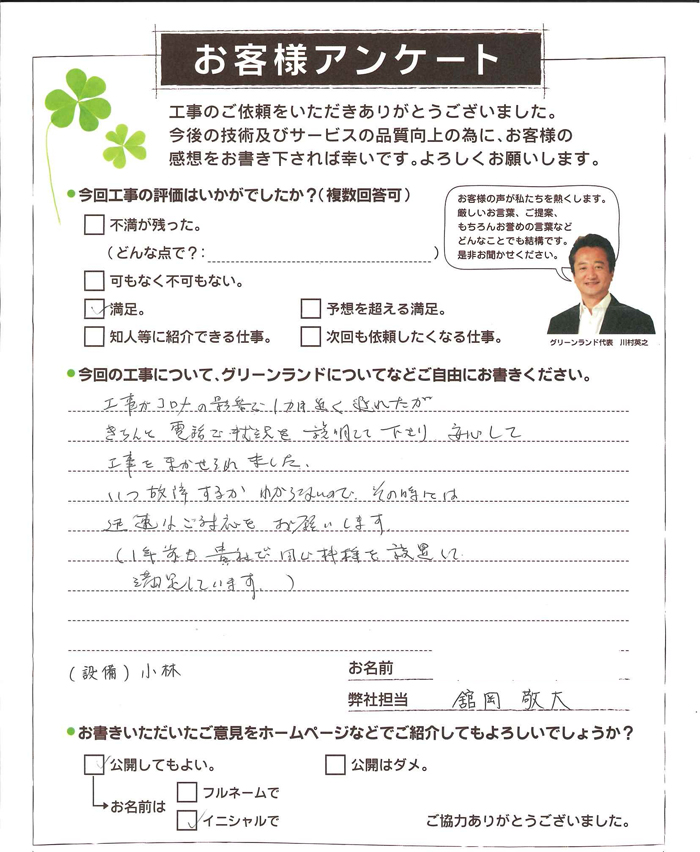 お客様アンケート
工事のご依頼をいただきありがとうございました。
今後の技術及びサービスの品質向上の為に、お客様の
感想をお書き下されば幸いです。よろしくお願いします。
今回工事の評価はいかがでしたか？（複数回答可）
不満が残った。
（どんな点で？： ）
可もなく不可もない。
満足。
予想を超える満足。
知人等に紹介できる仕事。
次回も依頼したくなる仕事。
お客様の声が私たちを熱くします。
厳しいお言葉、ご提案、
もちろんお誉めの言葉など
どんなことでも結構です。
是非お聞かせください。
グリーンランド代表 川村英之
今回の工事について、グリーンランドについてなどご自由にお書きください。
工事がコロナの影響で1カ月近く遅れたが
きちんと電話で状況を説明して下さり 安心して
工事をまかせられました。
いつ故障するかわからないので、その時には
迅速なご対応をお願いします
(1年前も貴社で同じ機種を設置して
満足しています。)
(設備) 小林
お名前
弊社担当 舘岡 敬大
お書きいただいたご意見をホームページなどでご紹介してもよろしいでしょうか？
公開してもよい。
公開はダメ。
お名前は
フルネームで
イニシャルで
ご協力ありがとうございました。